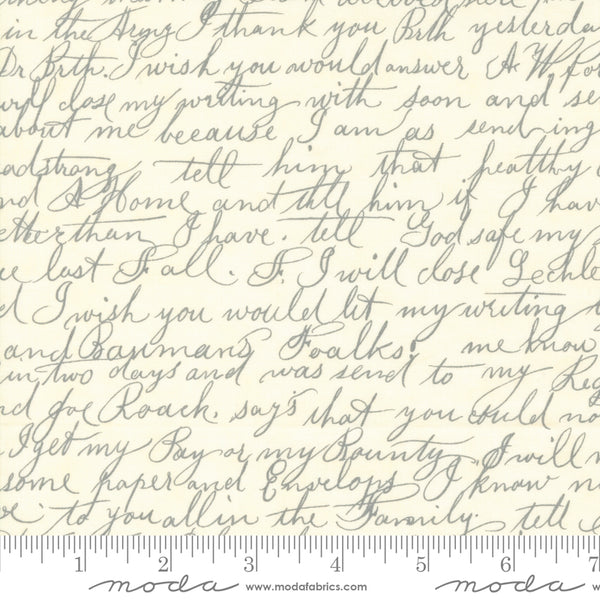 in the Army I thank you Brth yesterda
Dr Brth. I wish you would answer A W. for
will close my writing with soon and se
about me because I am as sending
adstrong tell him that healthy
nd A Home and till him if I hav
etter than I have. tell God safe my
ce last Fall. F. I will close Lechle
d I wish you would let my writing
and Bauman's Foalks. me know
in two days and was send to my Reg
nd Joe Roack. say's that you could no
I get my Pay or my Bounty I will
some paper and Envelops I know n
ve to you all in the Family. tell
1 2 3 4 5 6 7
moda www.modafabrics.com moda